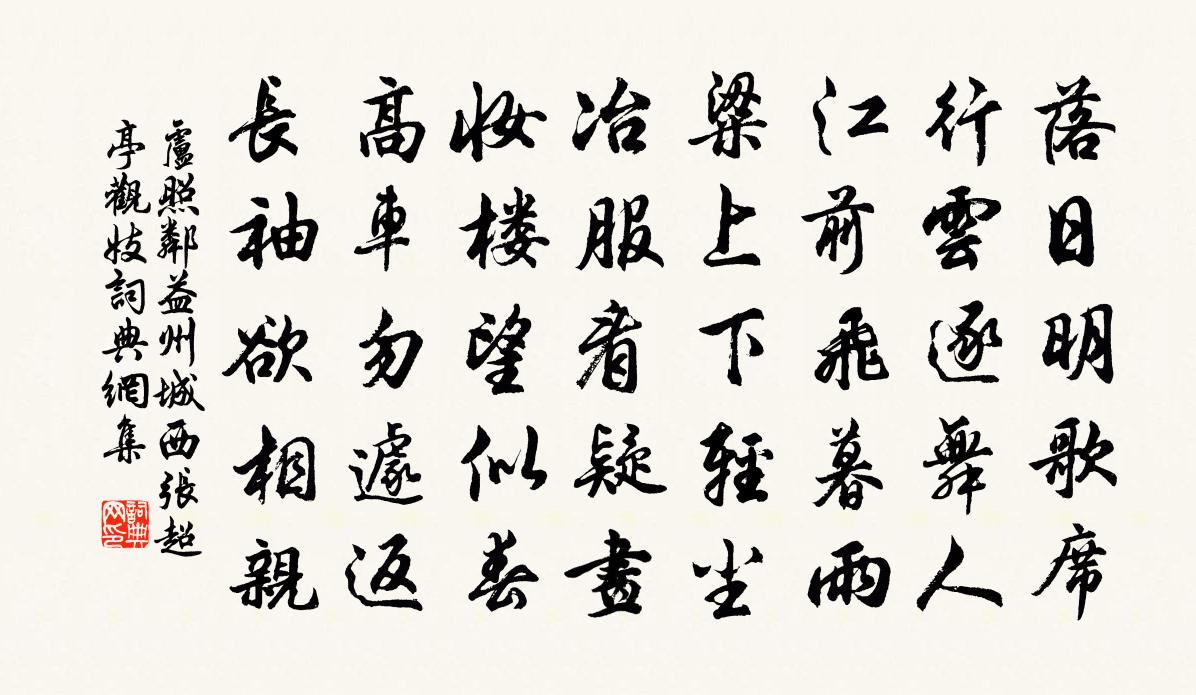 落日明歌席
行雲逐舞人
江前飛暮雨
梁上下輕塵
冶服看疑畫
妝楼望似春
高車勿遽返
長袖欲相親
盧照鄰益州城西張超
亭觀妓詞典網集
詞典
网印